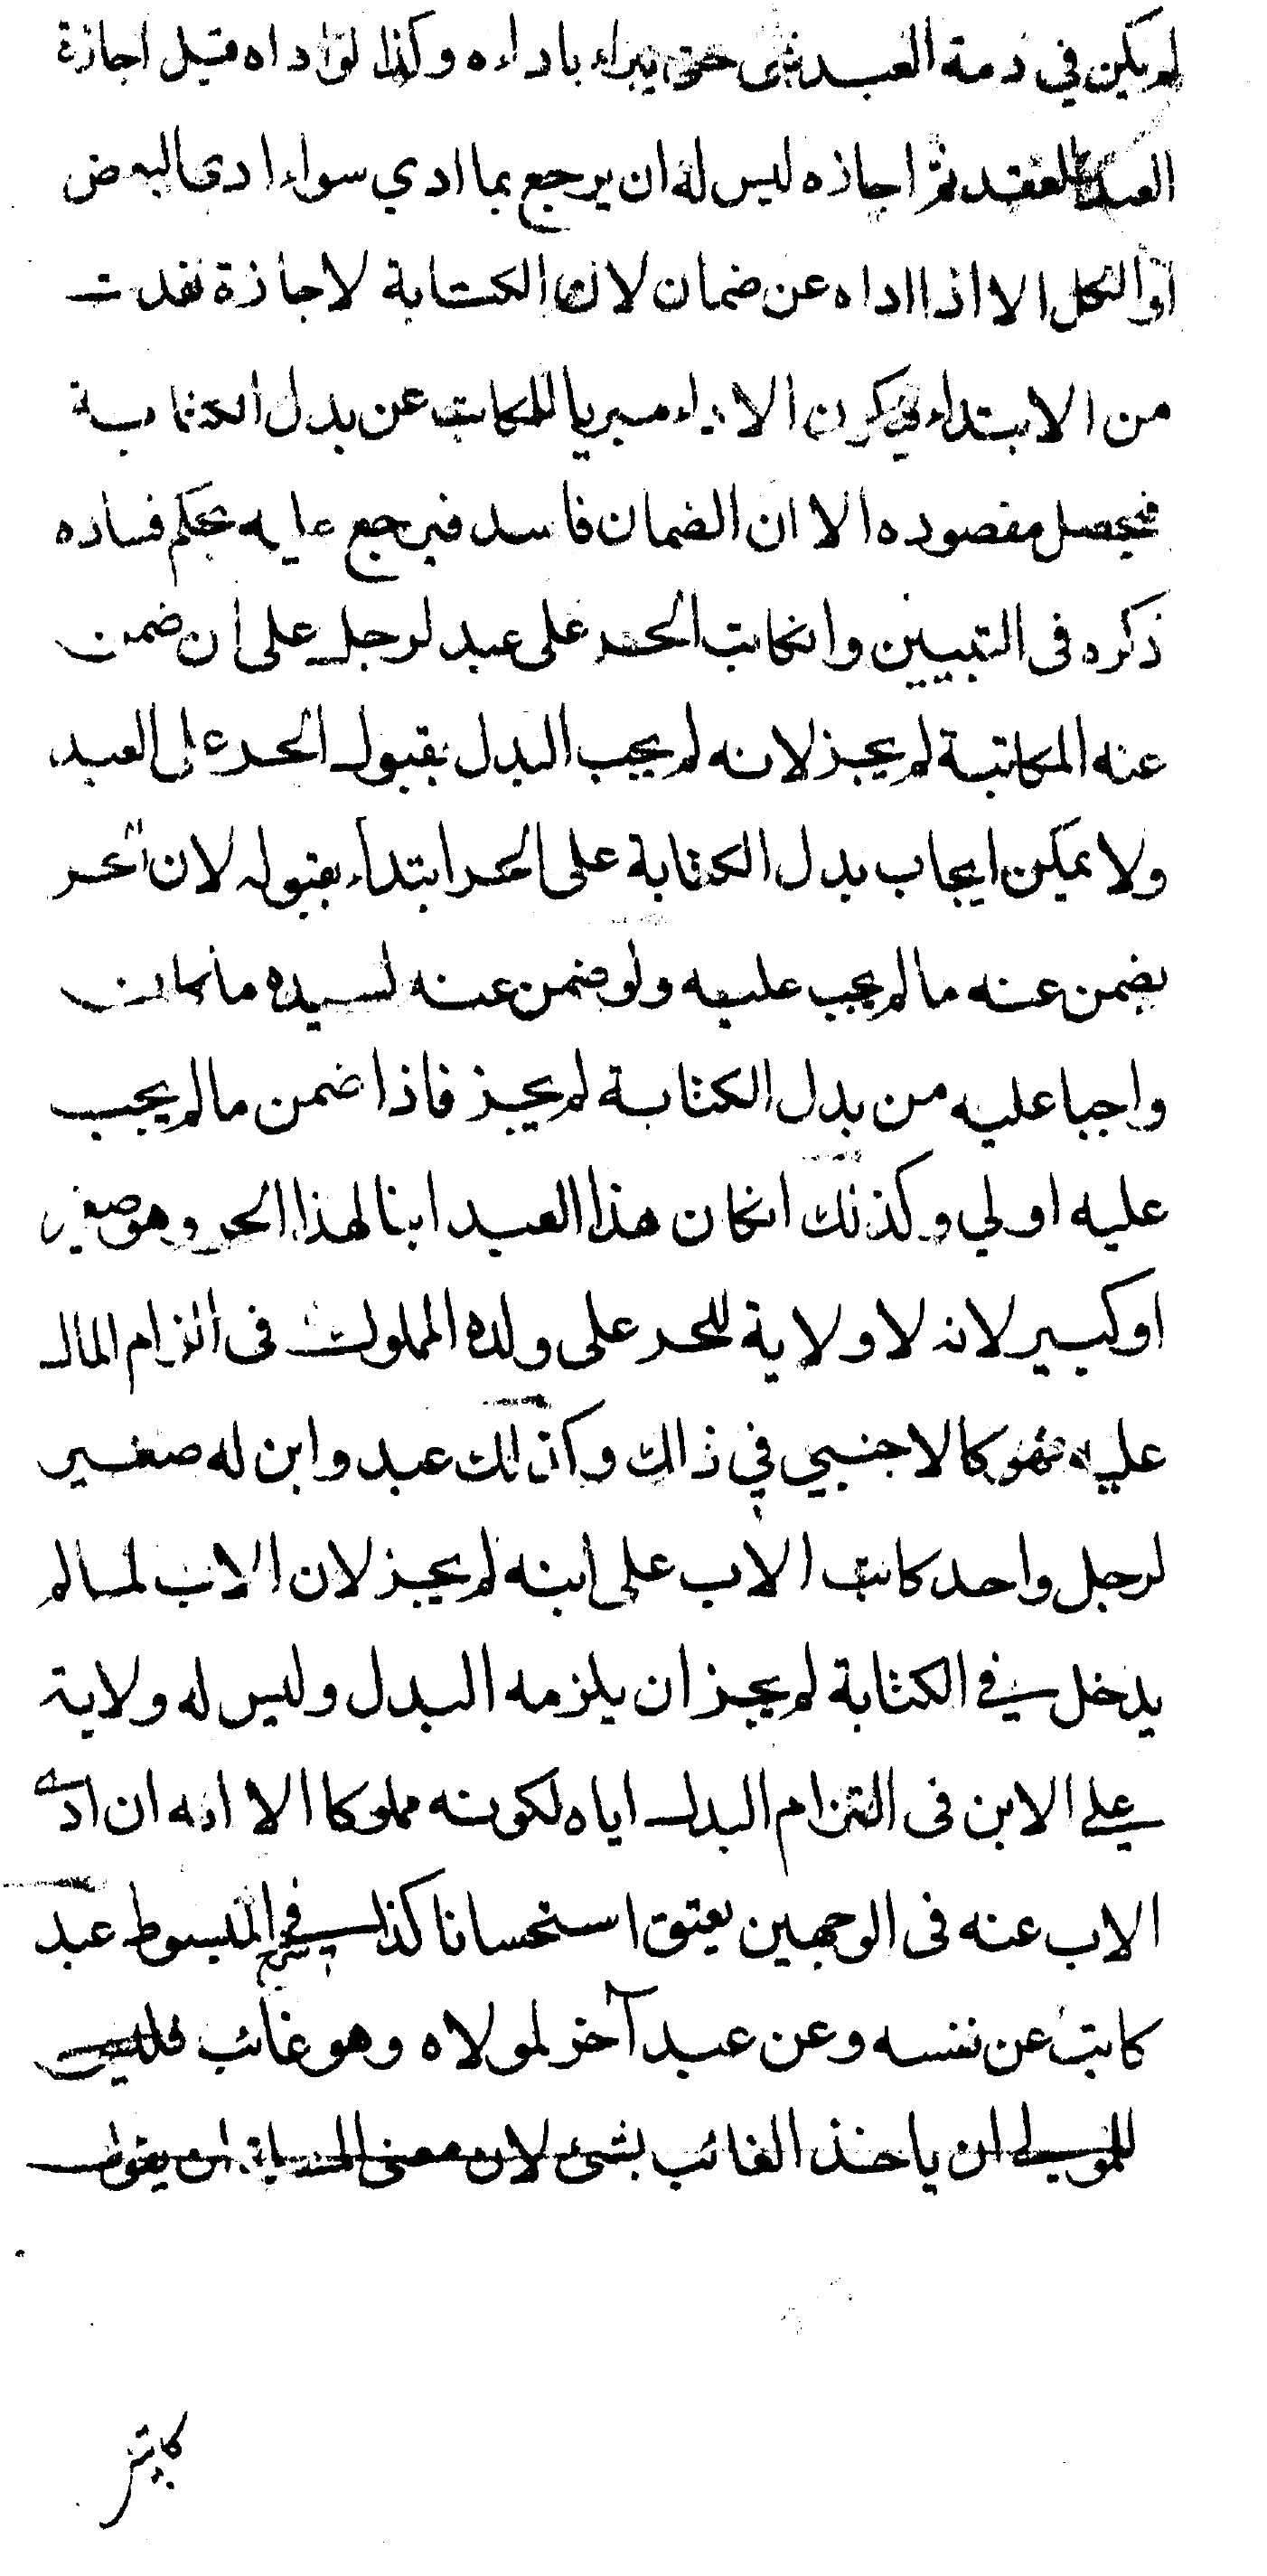 لم يكن في ذمة العبد شى حتى يبراء باداءه وكذا لو اداه قبل اجازة
العبد العقد ثم اجازه ليس له ان يرجع بما ادي سواء ادى البعض
او الكل الا اذا اداه عن ضمان لان الكتابة لاجازة نفدت
من الابتداء فيكون الاداء مبريا للمكاتب عن بدل الكتابة
فيحصل مقصوده الا ان الضمان فاسد فيرجع عليه بحكم فساده
ذكره فى التبيين وانكاتب الحر على عبد لرجل على ان ضمن
عنه المكاتبة لم يجز لانه لم يجب البدل بقبول الحر على العبد
ولا يمكن ايجاب بدل الكتابة على الحر ابتداء بقبوله لان الحر
يضمن عنه مالم يجب عليه ولو ضمن عنه لسيده ما كان
واجبا عليه من بدل الكتابة لم يجز فاذا ضمن مالم يجب
عليه اولي وكذلك انكان هذا العبد ابنا لهذا الحر وهو صغير
او كبير لانه لا ولاية للحر على ولده المملوك فى الزام المال
عليه فهو كالاجنبي في ذالك وكذلك عبد وابن له صغير
لرجل واحد كاتب الاب على ابنه لم يجز لان الاب لما لم
يدخل في الكتابة لم يجز ان يلزمه البدل وليس له ولاية
على الابن فى التزام البدل اياه لكونه مملوكا الا انه ان ادى
الاب عنه فى الوجهين يعتق استحسانا كذا فى شرح المبسوط عبد
كاتب عن نفسه وعن عبد آخر لمولاه وهو غائب فليس
للمولى ان ياخذ الغائب بشئ لان معنى المسئلة ان يقول